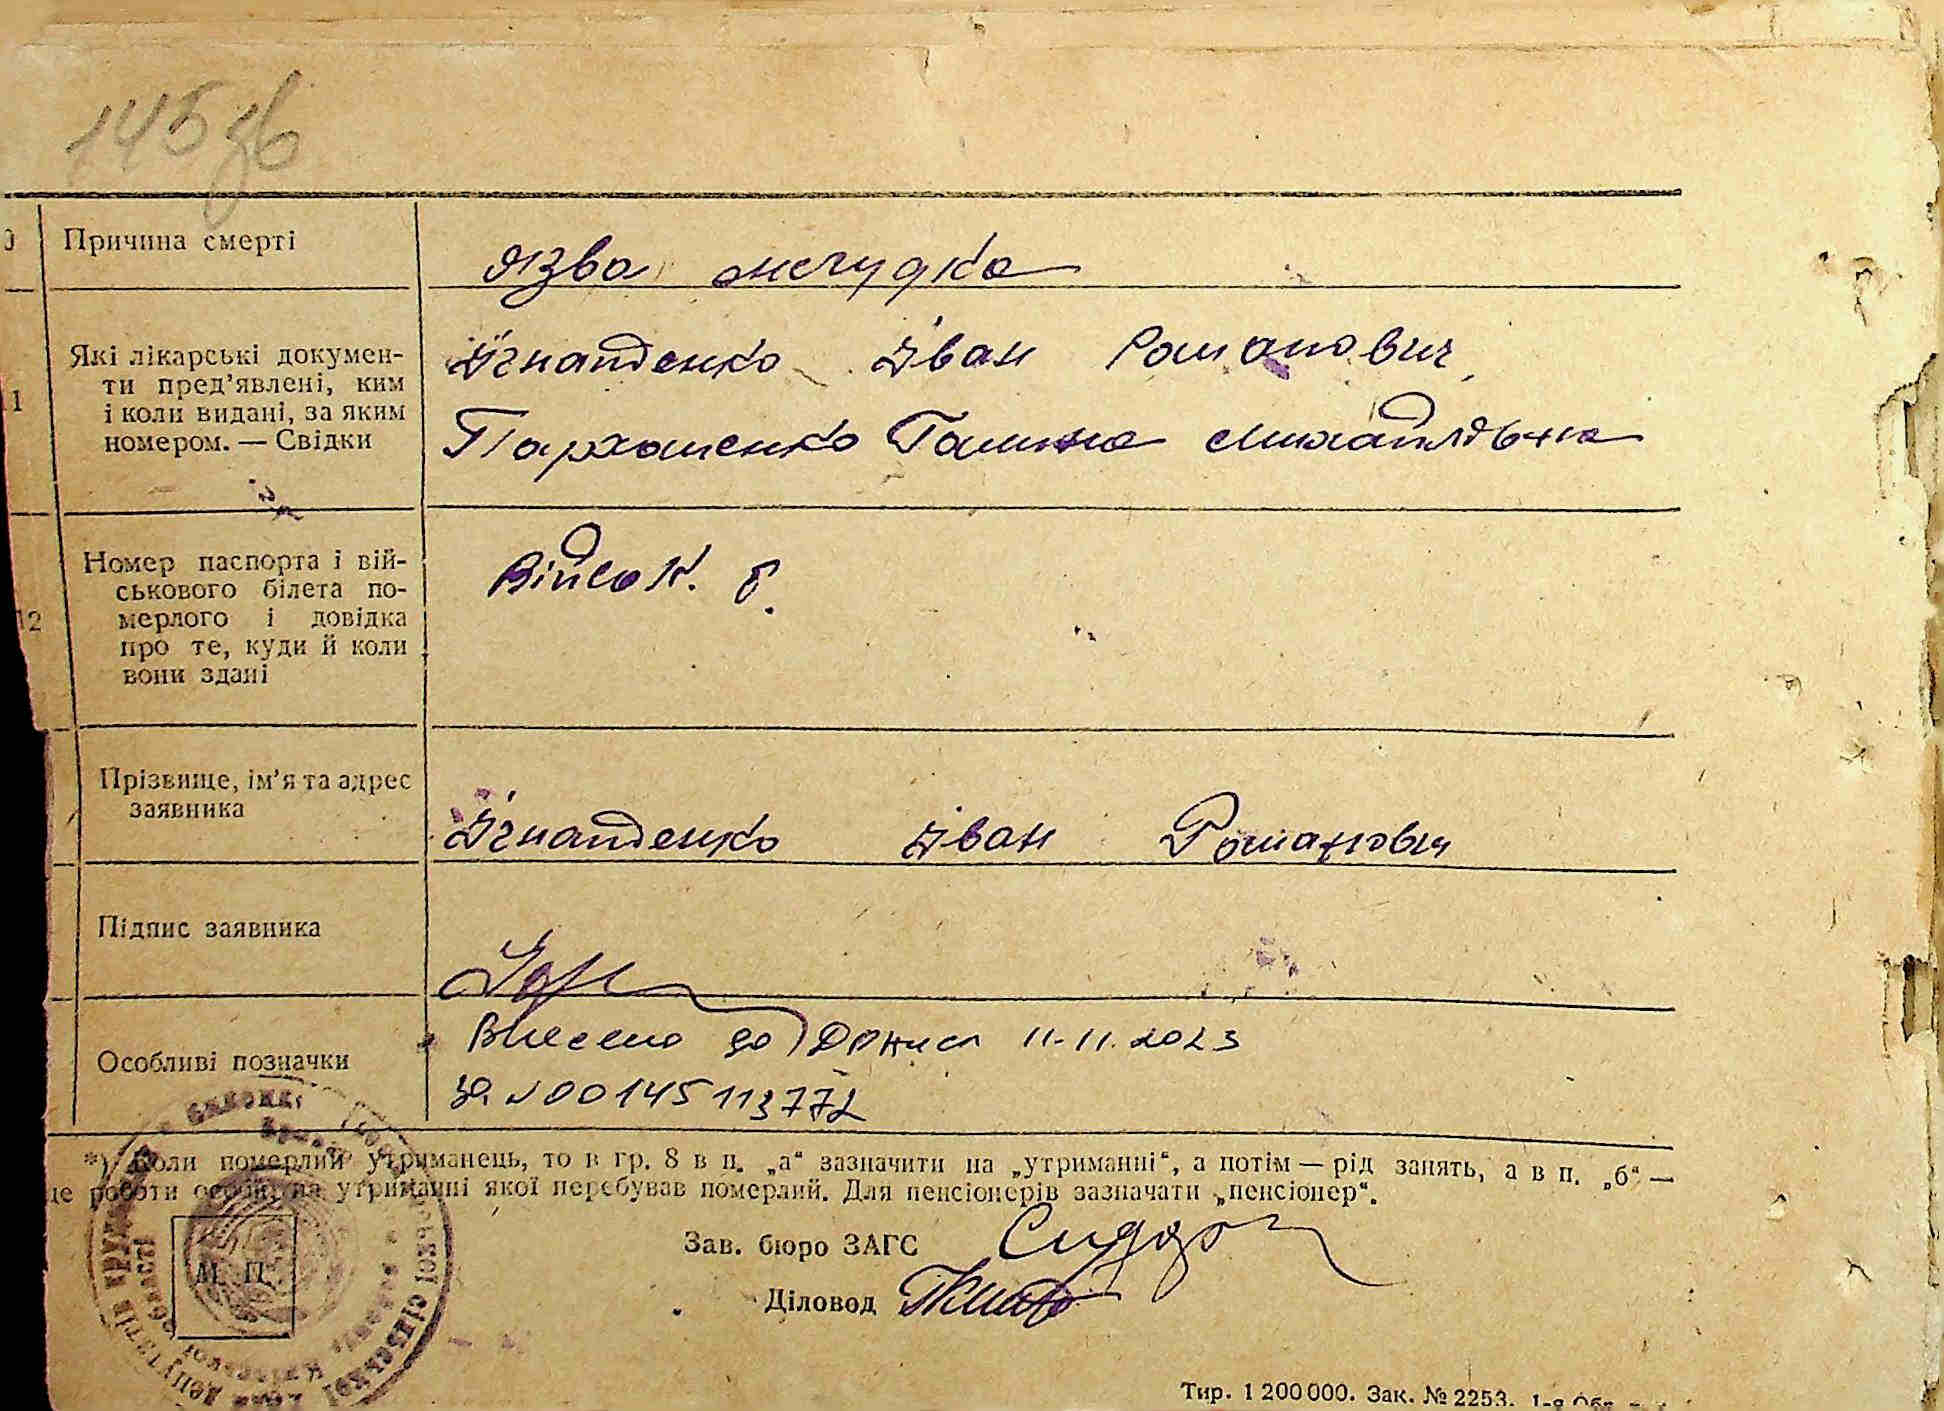 145зв
Причина смерті
язва желудка
11
Які лікарські докумен-
ти пред’явлені, ким
і коли видані, за яким
номером. — Свідки
Ігнатенко Іван Романович
Пархоменко Галина Михайлівна
12
Номер паспорта і вій-
ськового білета по-
мерлого і довідка
про те, куди й коли
вони здані
Військ. б.
Прізвище, ім’я та адрес
заявника
Ігнатенко Іван Романович
Підпис заявника
Особливі позначки
Внесено до ДРАЦСГ 11.11.2023
за №00145113772
*) Коли померлий утриманець, то в гр. 8 в п. „а“ зазначити на „утриманні“, а потім — рід занять, а в п. „б“ —
це роботи особи, на утриманні якої перебував померлий. Для пенсіонерів зазначати „пенсіонер“.
Зав. бюро ЗАГС
М. П.
Діловод
Тир. 1 200 000. Зак. № 2253.